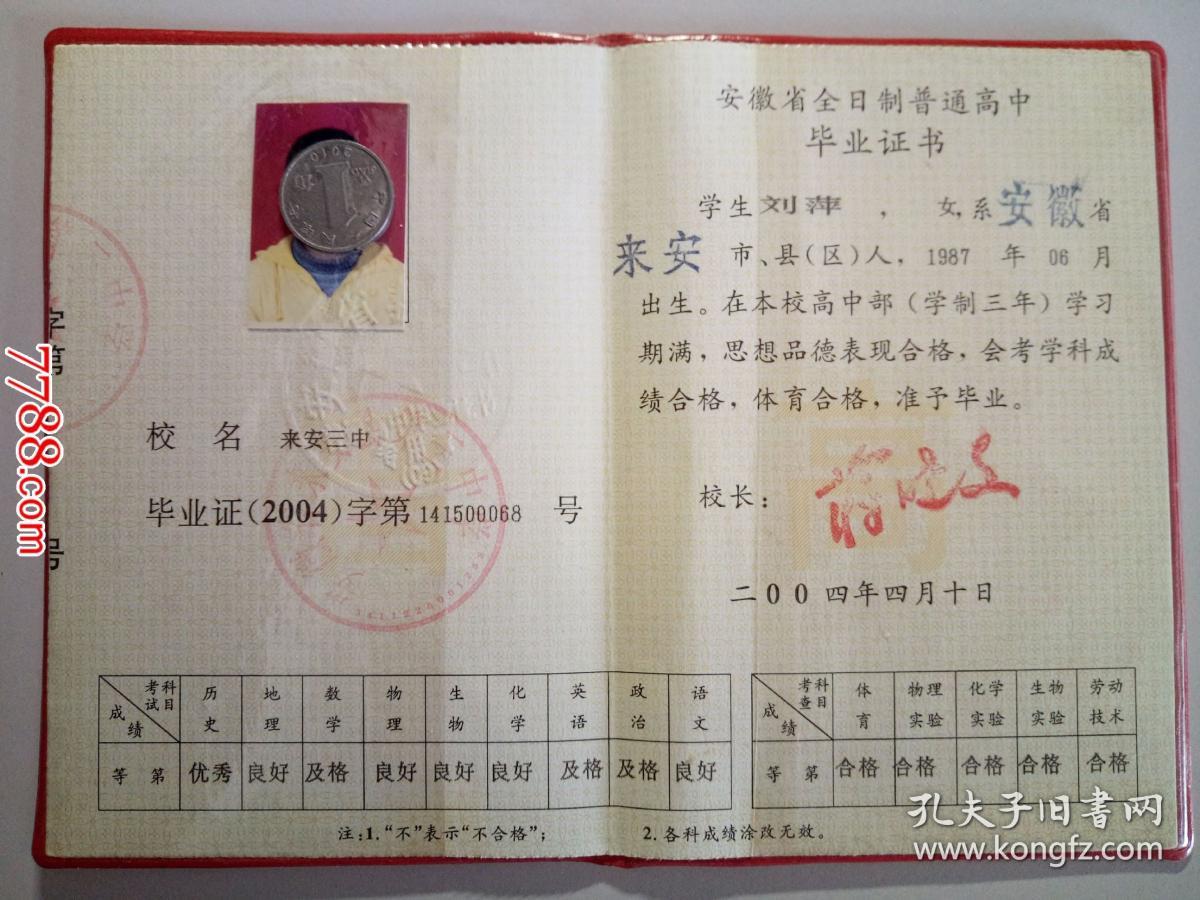 安徽省全日制普通高中
毕业证书
学生刘萍，女,系安徽省
来安市、县(区)人，1987年06月
出生。在本校高中部（学制三年）学习
期满，思想品德表现合格，会考学科成
绩合格，体育合格，准予毕业。
校长：
二00四年四月十日
字第
号
校名 来安三中
毕业证(2004)字第141500068号
考试科目 历史 地理 数学 物理 生物 化学 英语 政治 语文
成绩
等第 优秀 良好 及格 良好 良好 良好 及格 及格 良好
考查科目 体育 物理实验 化学实验 生物实验 劳动技术
成绩
等第 合格 合格 合格 合格 合格
注:1.“不”表示“不合格”； 2.各科成绩涂改无效。
7788.com
孔夫子旧書网
www.kongfz.com